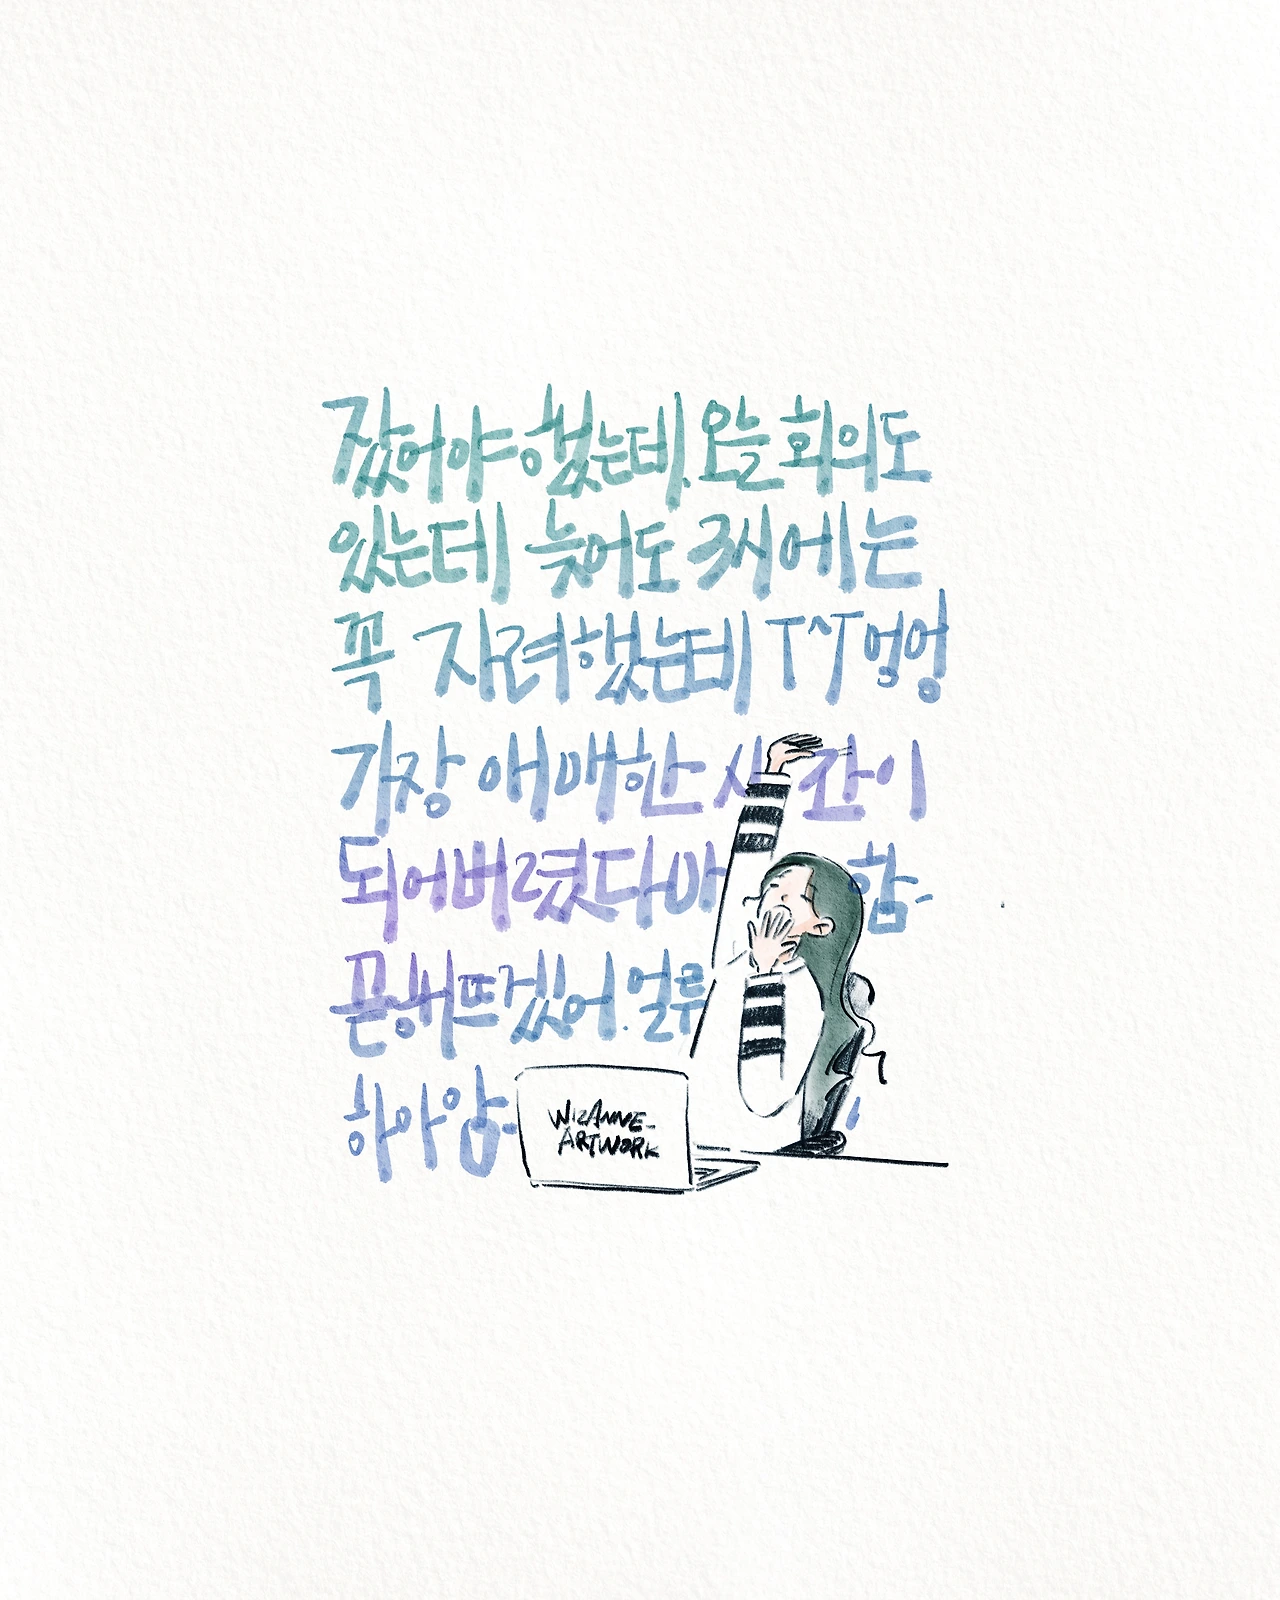 잤어야 했는데. 오늘 회의도
있는데 늦어도 3시에는
꼭 자려했는데 T^T 엉엉
가장 애매한 시간이
되어버렸다아 함-
끈해뜨겠어. 얼른
하아암-
WIZANNE-
ARTWORK